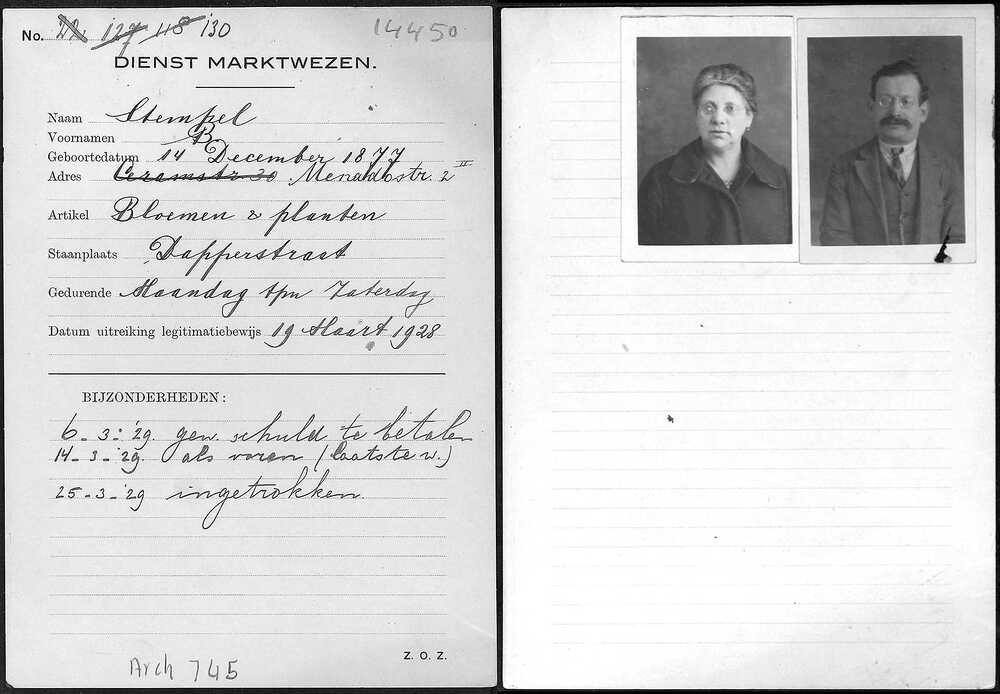 No. 22 127 118 130 14450
DIENST MARKTWEZEN.
Naam Stempel
Voornamen B
Geboortedatum 14 December 1877
Adres Ceramstr. 30 Menadostr. 2 II
Artikel Bloemen & planten
Staanplaats Dapperstraat
Gedurende Maandag tpn Zaterdag
Datum uitreiking legitimatiebewijs 19 Maart 1928
BIJZONDERHEDEN:
6-3-'29. gew. schuld te betalen
14-3-'29. als voren (laatste w.)
25-3-'29 ingetrokken.
Z. O. Z.
Arch 745